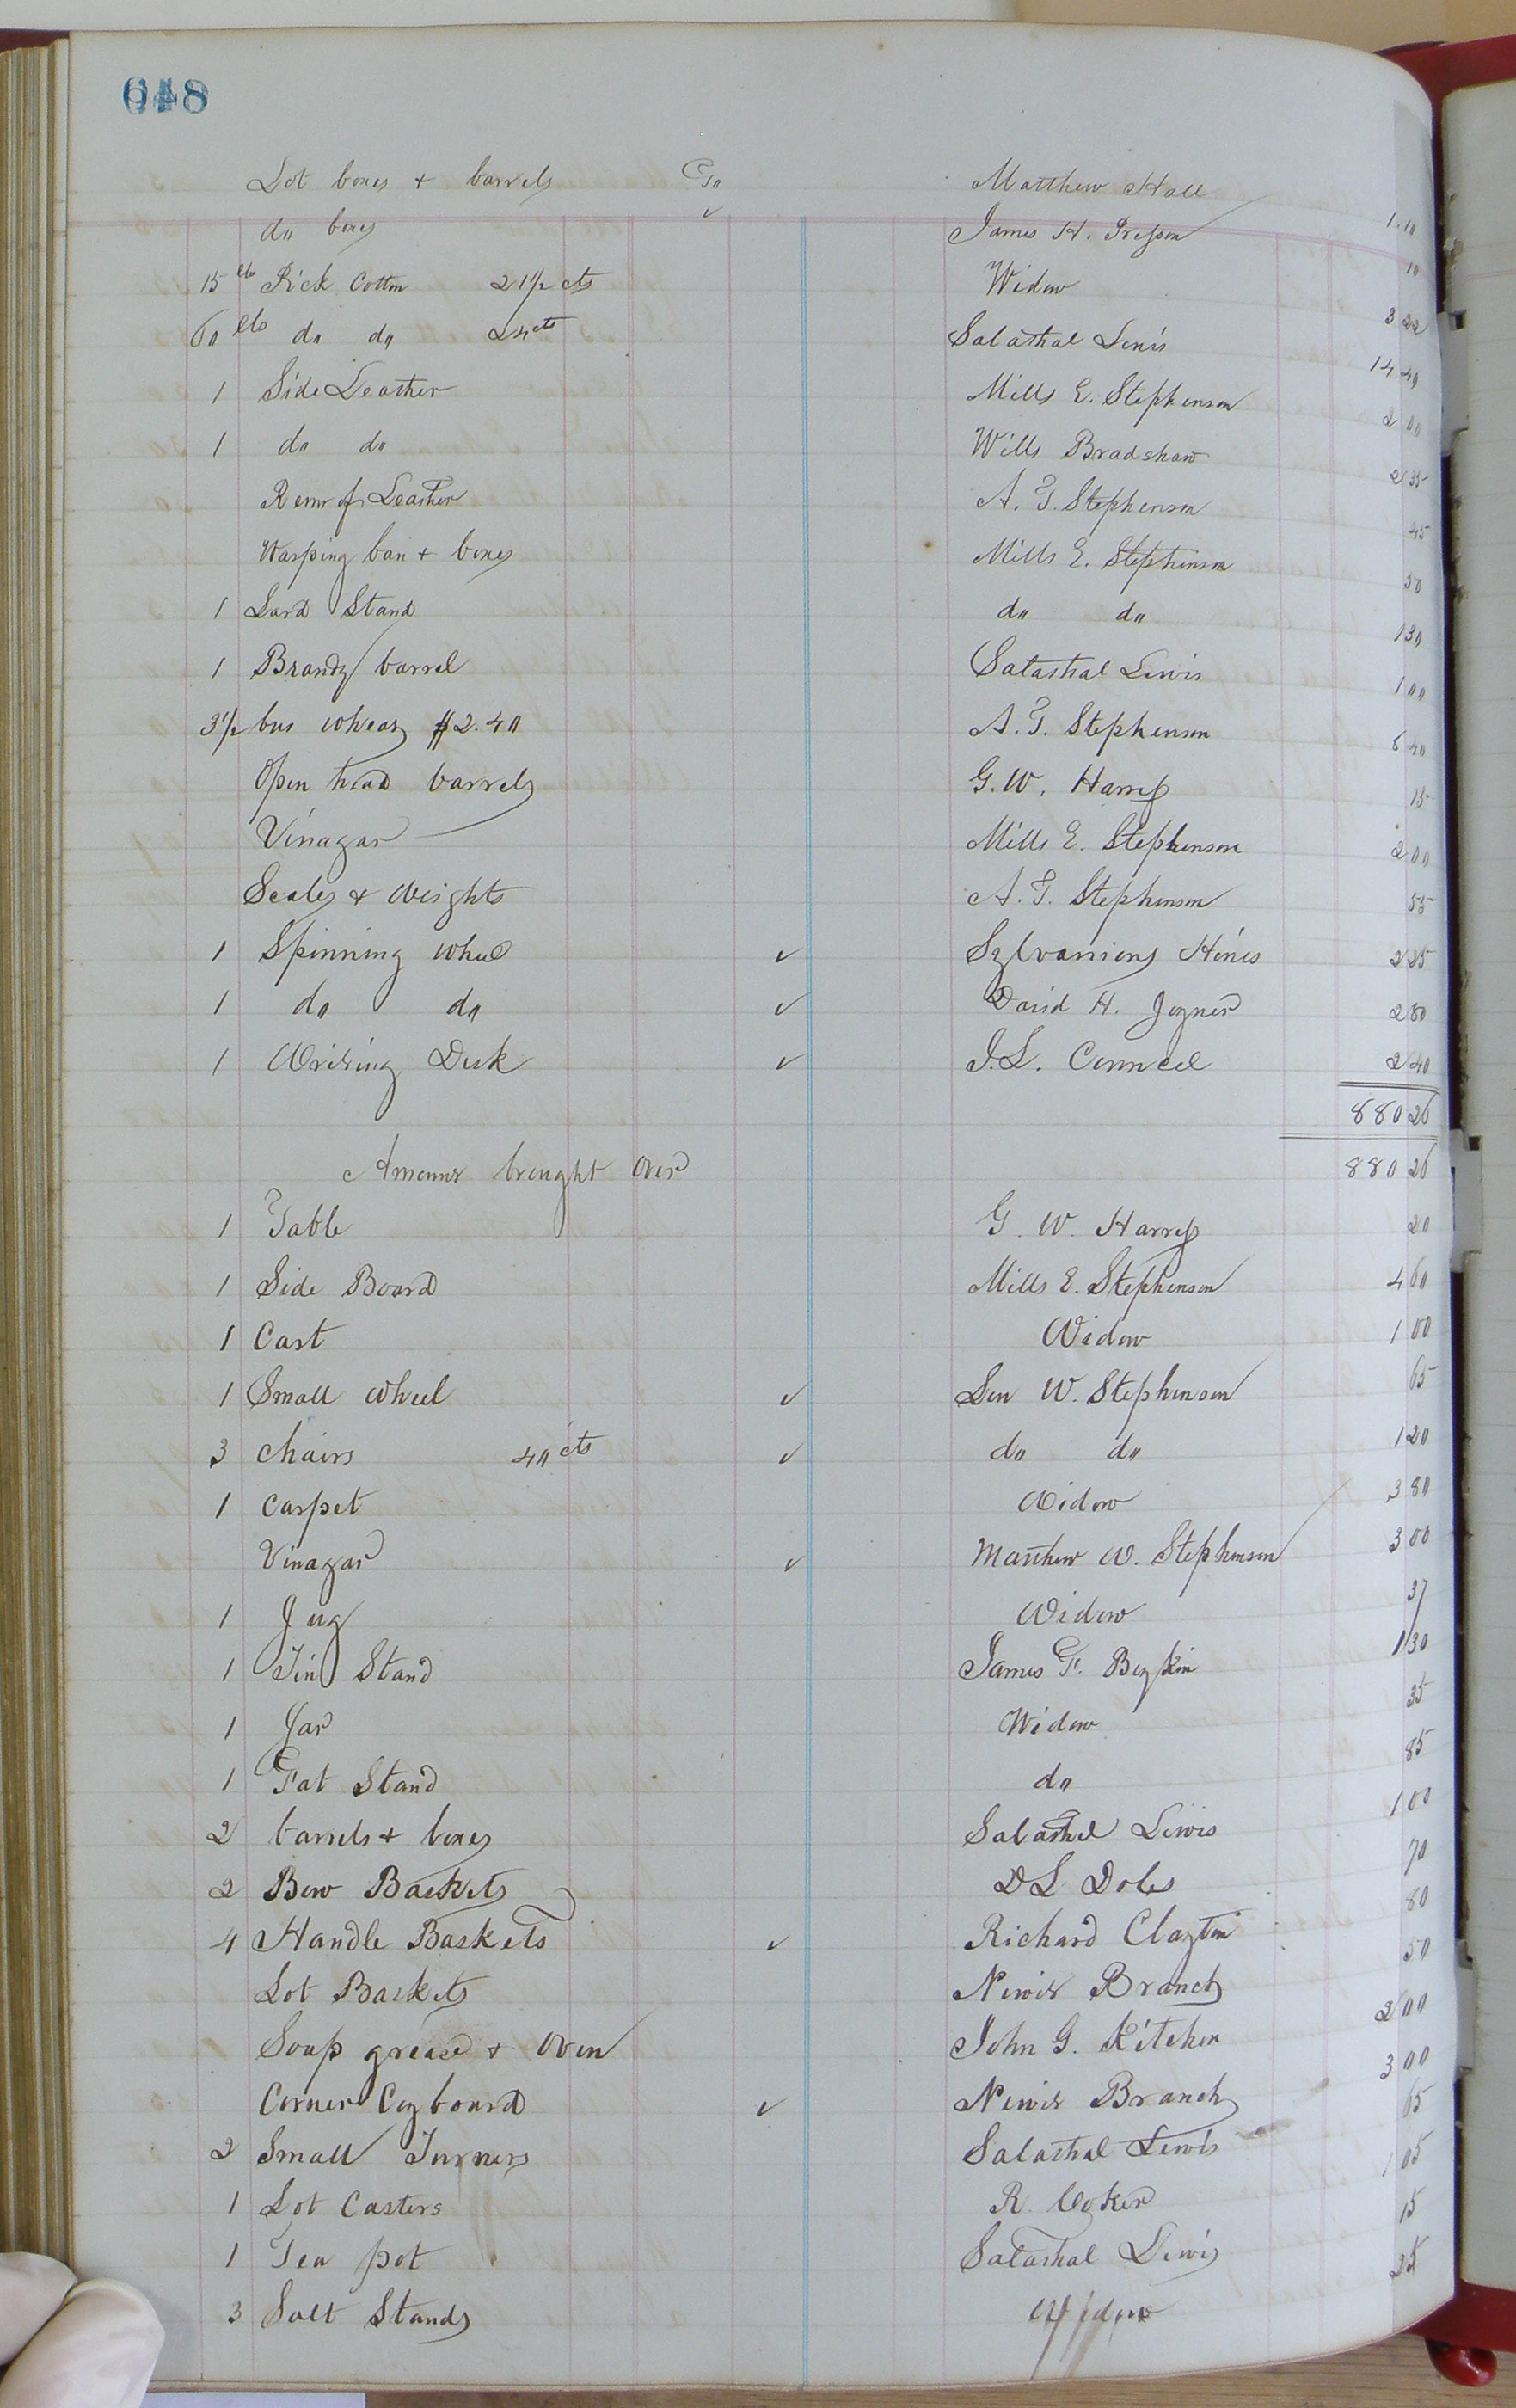 648
Lot boxes + barrels Co Matthew Hall 1.10
do boxes ✓ James H. Presson 10
15 lbs Pick Cotton 21 1/2 cts Widow 3 22
60 lbs do do 24 cts Salathal Lewis 14 40
1 Side Leather Mills E. Stephenson 2 00
1 do do Wills Bradshaw 2 35
Remr of Leather A. T. Stephenson 45
Warping bars + boxes Mills E. Stephenson 50
1 Lard Stand do do 1 30
1 Brandy barrel Salathal Lewis 1 00
3 1/2 bus wheat $2.40 A. T. Stephenson 8 40
Open head barrels G. W. Harriss 15
Vinagar Mills E. Stephenson 2 00
Scales + Weights A. T. Stephenson 55
1 Spinning wheel ✓ Sylvanious Hines 2 25
1 do do ✓ David H. Joyner 2 80
1 Writing Desk ✓ J. L. Council 2 40
880 26
Amount brought over 880 26
1 Table G. W. Harriss 20
1 Side Board Mills E. Stephenson 4 60
1 Cart Widow 1 00
1 Small wheel ✓ Lem W. Stephenson 65
3 chairs 40 cts ✓ do do 1 20
1 carpet Widow 3 80
Vinagar ✓ Matthew W. Stephenson 3 00
1 Jug Widow 37
1 Tin Stand James F. Boykin 1 30
1 Jar Widow 35
1 Fat Stand do 85
2 barrels + boxes Salathal Lewis 1 00
2 Bow Baskets D L Doles 70
4 Handle Baskets ✓ Richard Clayton 80
Lot Baskets Newit Branch 50
Soap grease + Oven John G. Kitchen 2 00
Corner Cupboard ✓ Newit Branch 3 00
2 Small Turners Salathal Lewis 65
1 Lot Casters R. Coker 1 05
1 Tea pot Salathal Lewis 15
3 Salt Stands Widow 25